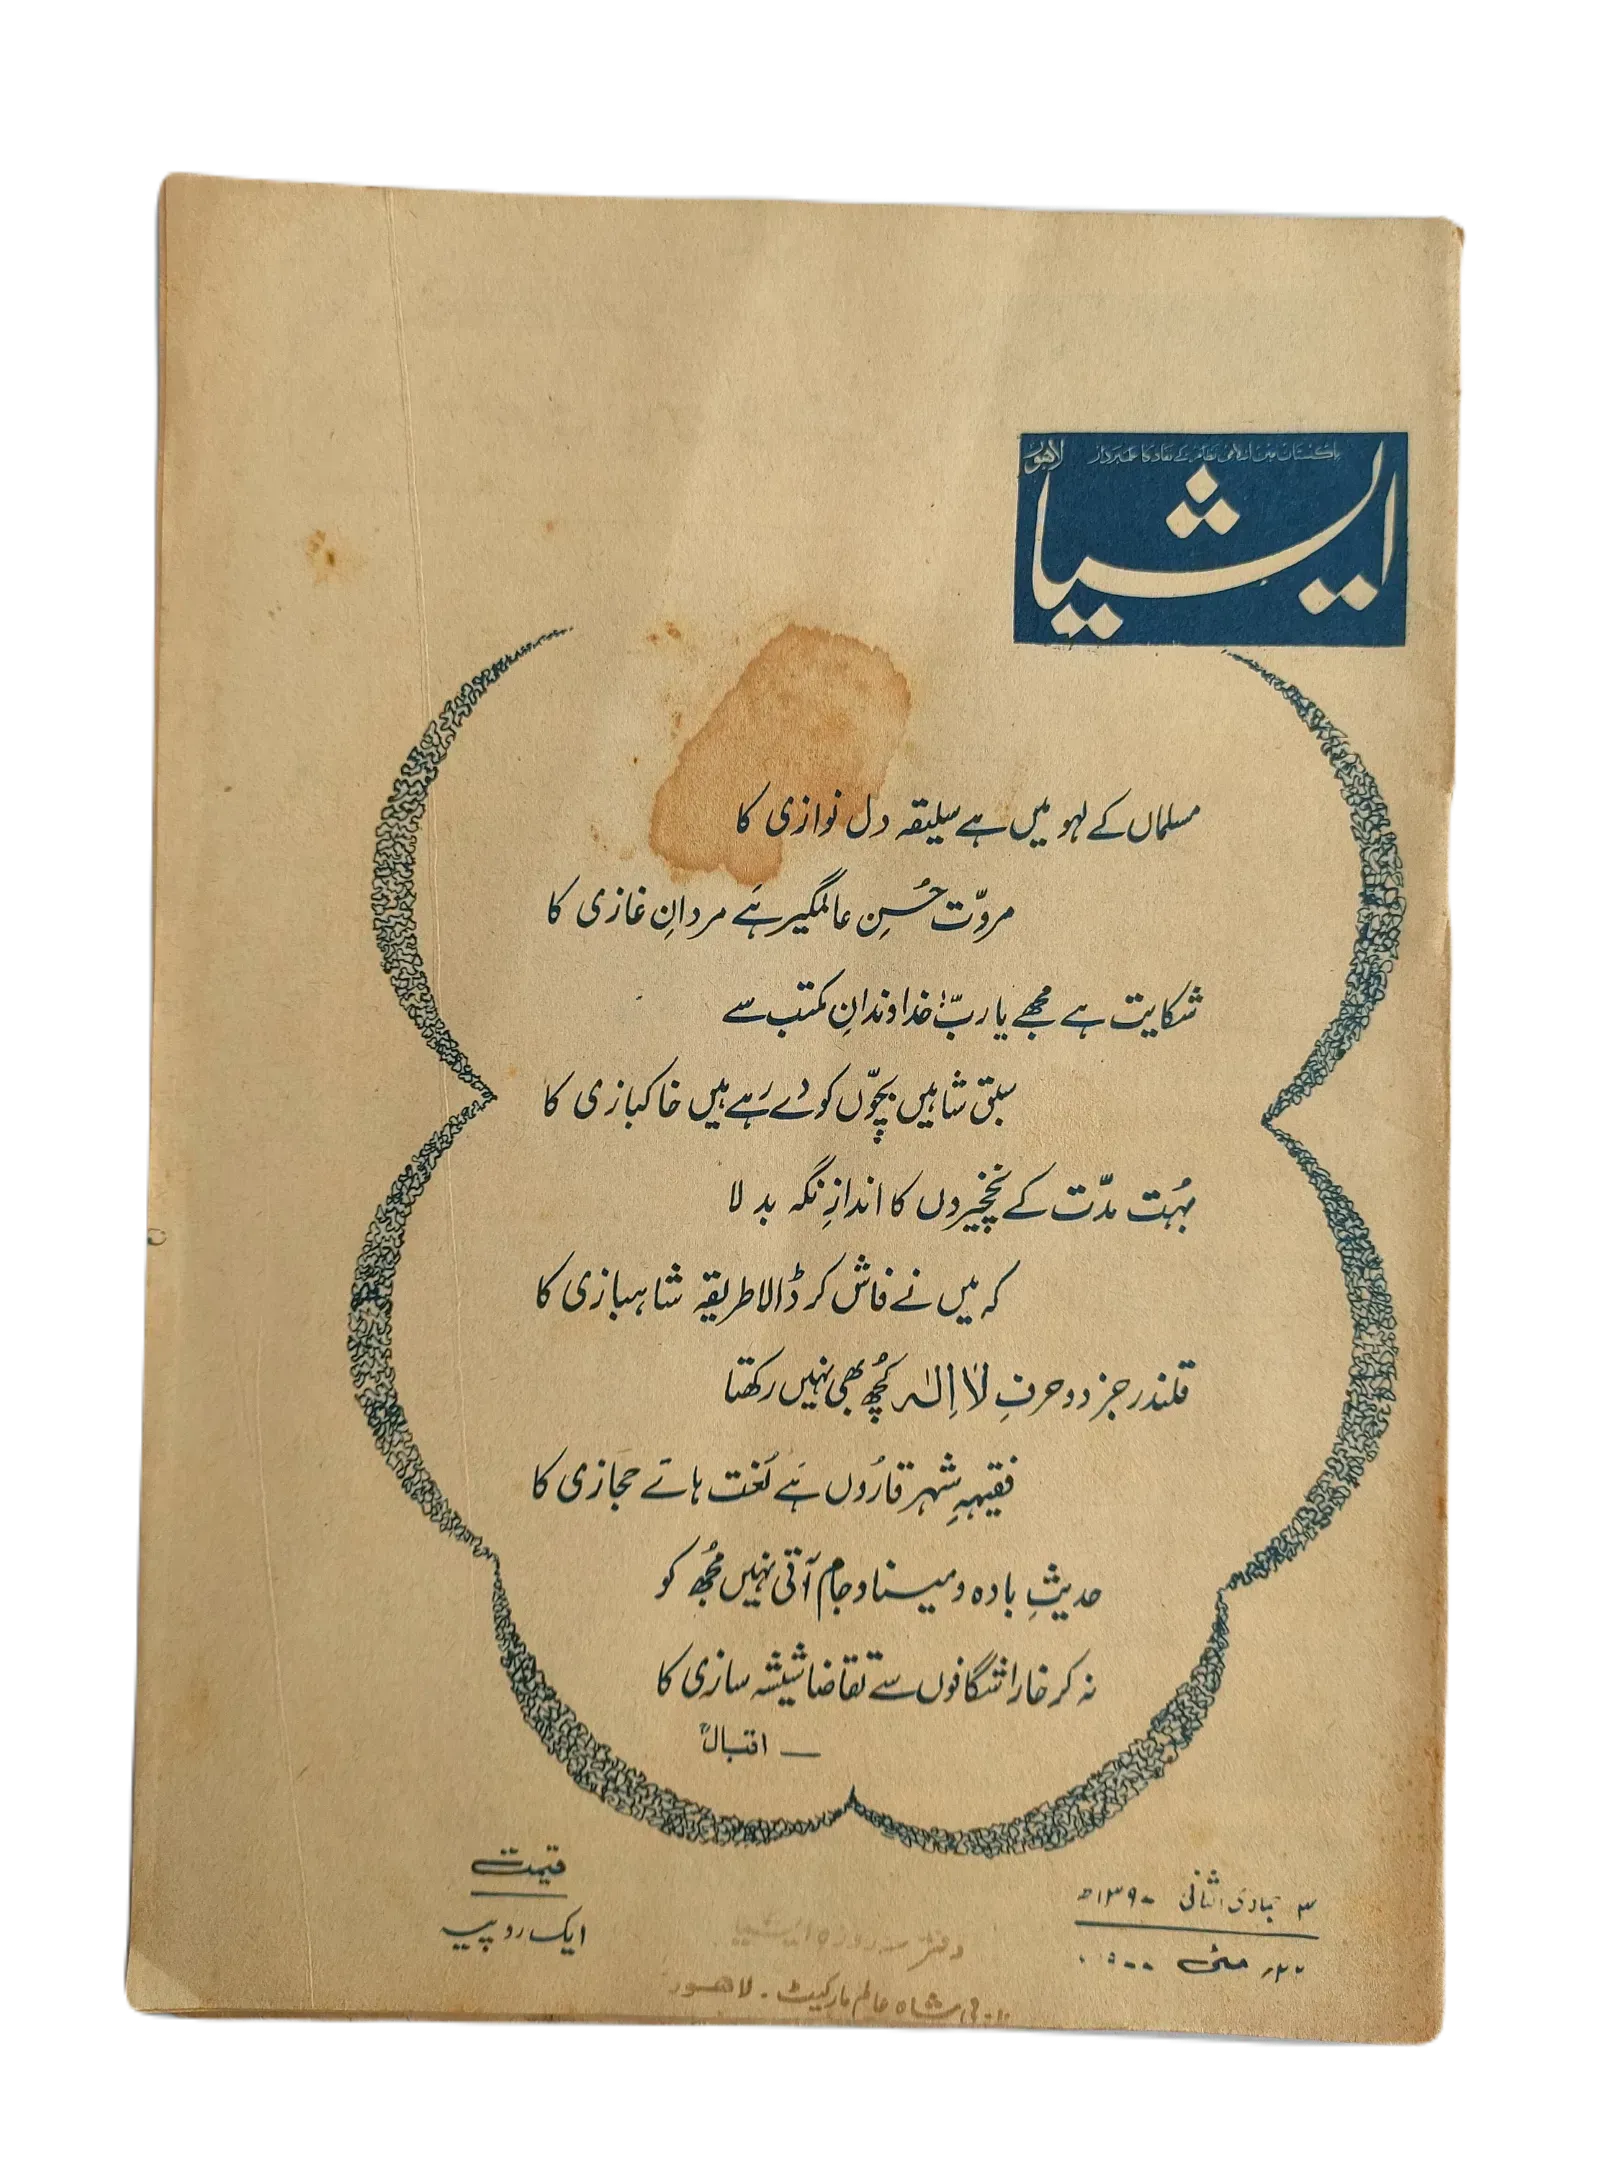 پاکستان میں اسلامی نظام کے نفاذ کا علمبردار
لاہور
ایشیا
مسلماں کے لہو میں ہے سلیقہ دل نوازی کا
مروّت حُسنِ عالمگیر ہَے مردانِ غازی کا
شکایت ہے مجھے یا ربّ! خداوندانِ مکتب سے
سبق شاہیں بچّوں کو دے رہے ہیں خاکبازی کا
بہُت مدّت کے نخچیروں کا اندازِ نگہ بدلا
کہ میں نے فاش کر ڈالا طریقہ شاہبازی کا
قلندر جز دو حرفِ لا اِلٰہ کُچھ بھی نہیں رکھتا
فقیہہِ شہر قارُوں ہَے لُغت ہائے حجازی کا
حدیثِ بادہ و مینا و جام آتی نہیں مُجھ کو
نہ کر خارا شگافوں سے تقاضا شیشہ سازی کا
— اقبالؒ
قیمت
ایک روپیہ
۳ جمادی الثانی ۱۳۹۰ھ
مئی
دفتر سہ روزہ ایشیا
شاہ عالم مارکیٹ - لاہور